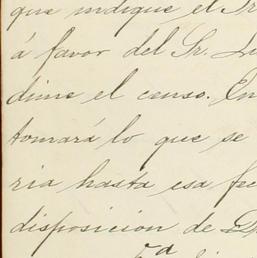 que indique el Sr
á favor del Sr. Lu
dime el censo. En
tomará lo que se
ria hasta esa fec
disposicion de D
5ª